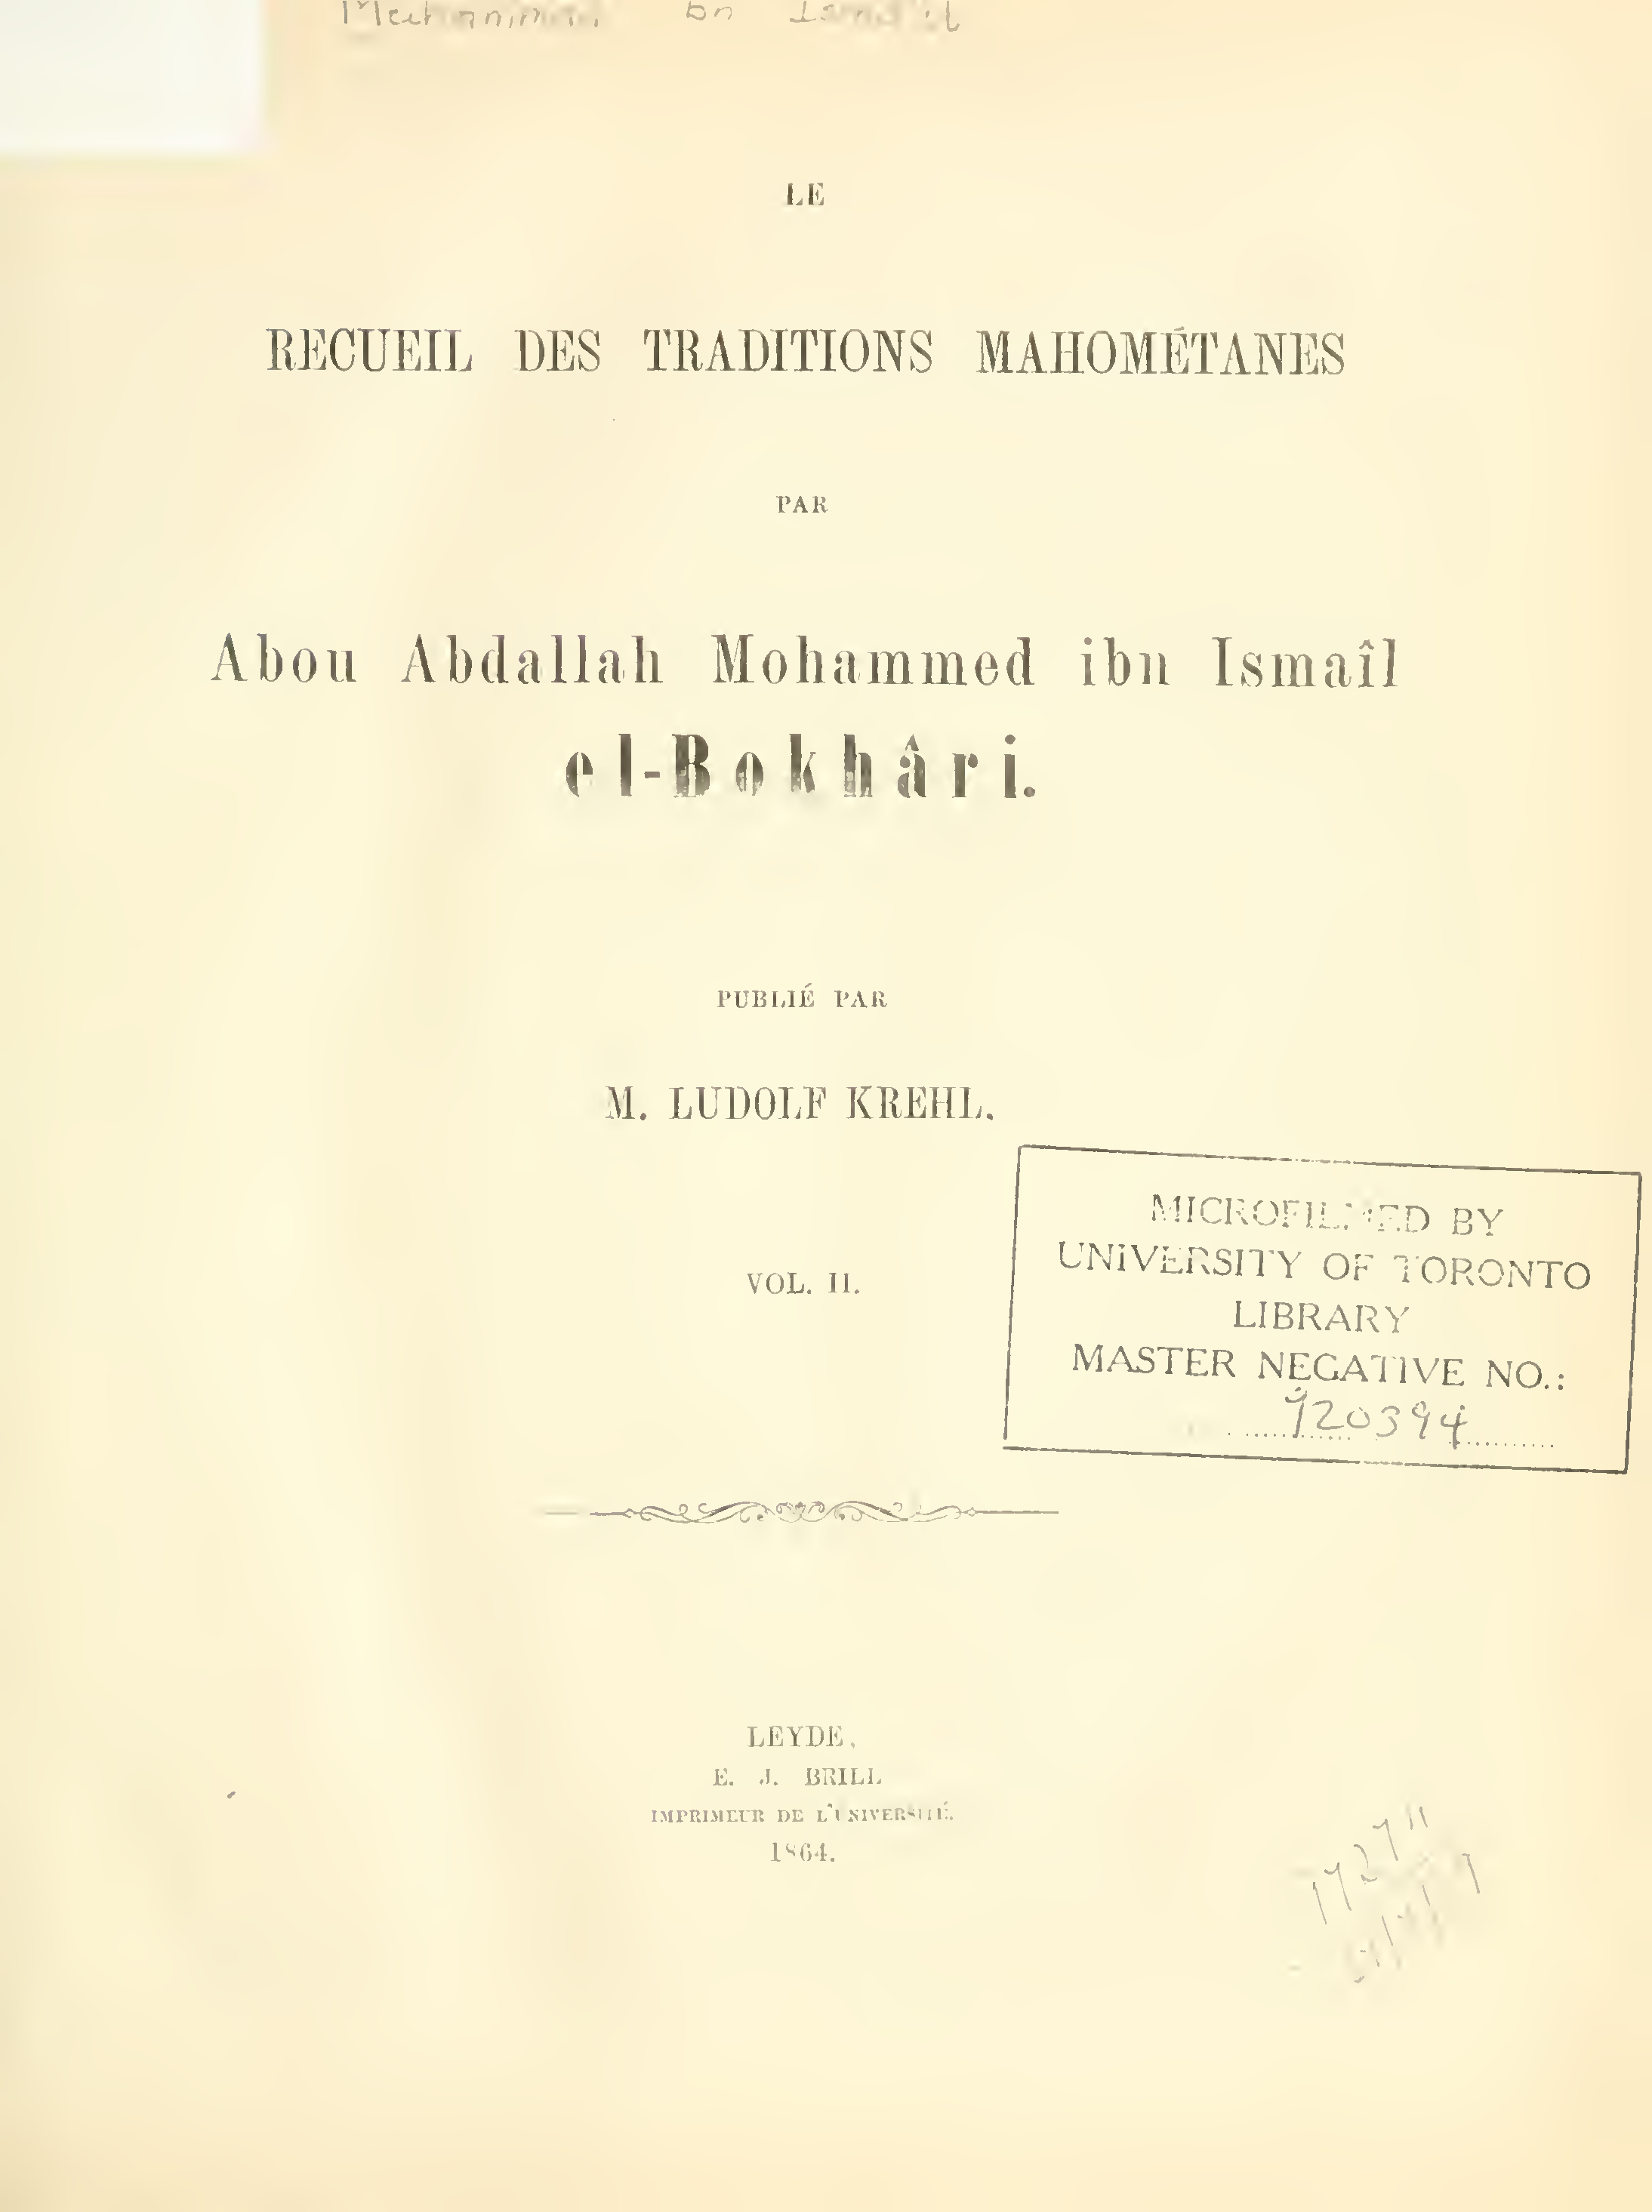 LE
RECUEIL DES TRADITIONS MAHOMÉTANES
PAR
Abou Abdallah Mohammed ibn Ismaîl
el-Bokhâri.
PUBLIÉ PAR
M. LUDOLF KREHL.
VOL. II.
MICROFILMED BY
UNIVERSITY OF TORONTO
LIBRARY
MASTER NEGATIVE NO.:
920394
LEYDE,
E. J. BRILL
IMPRIMEUR DE L'UNIVERSITÉ.
1864.